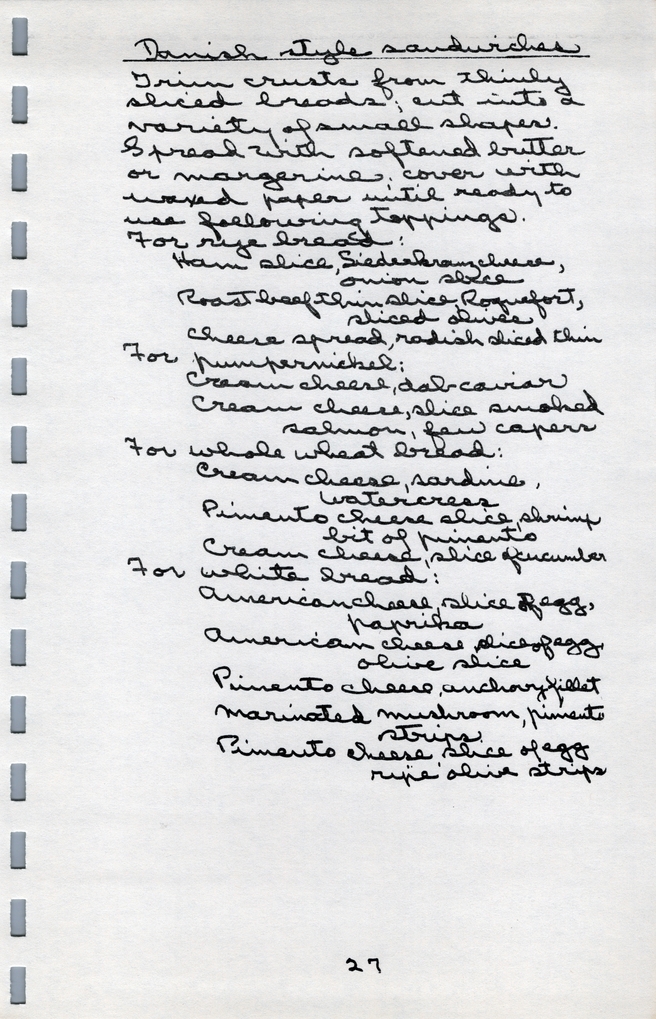 Danish style sandwiches
Trim crusts from thinly
sliced breads; cut into a
variety of small shapes.
Spread with softened butter
or margerine; cover with
waxed paper until ready to
use following toppings.
For rye bread:
Ham slice, Liederkranz cheese,
onion slice
Roast beef thin slice, Roquefort,
sliced olives
Cheese spread, radish sliced thin
For pumpernickel:
Cream cheese, dab caviar
Cream cheese, slice smoked
salmon, few capers
For whole wheat bread:
Cream cheese, sardine,
watercress
Pimento cheese slice, shrimp
bit of pimento
Cream cheese, slice of cucumber
For white bread:
American cheese, slice of egg,
paprika
American cheese, slice of egg,
olive slice
Pimento cheese, anchovy fillet
Marinated mushroom, pimento
strips.
Pimento cheese, slice of egg
ripe olive strips
27